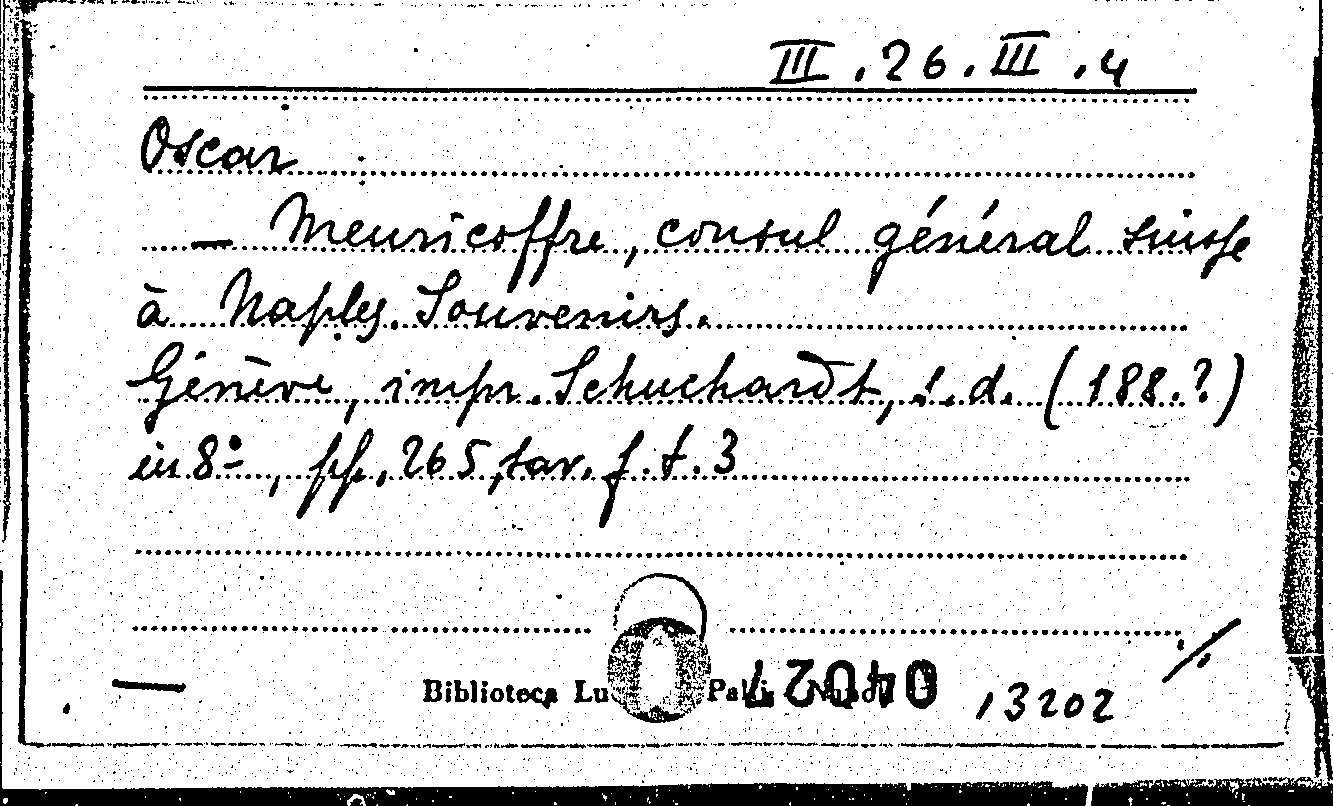 III.26.III.4
Oscar
— Meuricoffre, consul général suisse
à Naples. Souvenirs.
Génève, impr. Schuchardt, s.d. (188.?)
in 8º, pp. 265, tav. f.t. 3
Biblioteca
04027
13202